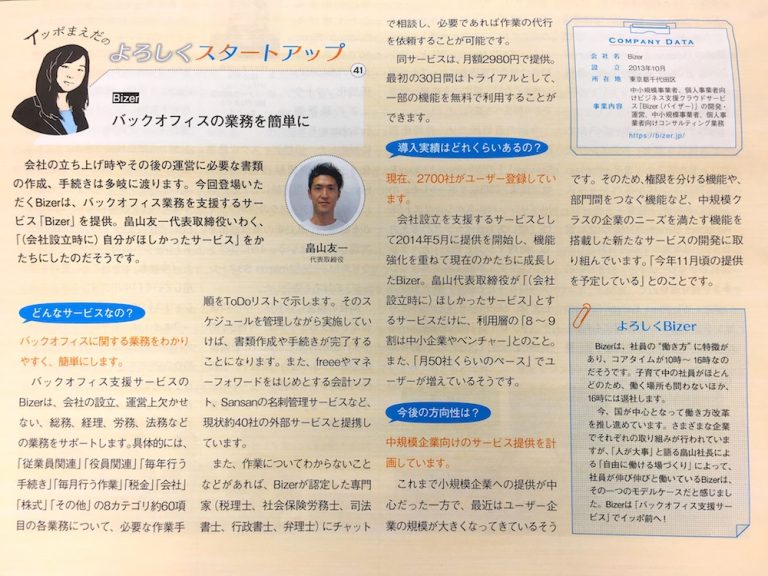 イッポまえだの
よろしくスタートアップ
41
Bizer
バックオフィスの業務を簡単に
会社の立ち上げ時やその後の運営に必要な書類
の作成、手続きは多岐に渡ります。今回登場いた
だくBizerは、バックオフィス業務を支援するサー
ビス「Bizer」を提供。畠山友一代表取締役いわく、
「（会社設立時に）自分がほしかったサービス」をか
たちにしたのだそうです。
畠山友一
代表取締役
どんなサービスなの？
バックオフィスに関する業務をわかり
やすく、簡単にします。
バックオフィス支援サービスの
Bizerは、会社の設立、運営上欠かせ
ない、総務、経理、労務、法務など
の業務をサポートします。具体的には、
「従業員関連」「役員関連」「毎年行う
手続き」「毎月行う作業」「税金」「会社」
「株式」「その他」の8カテゴリ約60項
目の各業務について、必要な作業手
順をToDoリストで示します。そのス
ケジュールを管理しながら実施してい
けば、書類作成や手続きが完了する
ことになります。また、freeeやマネ
ーフォワードをはじめとする会計ソフ
ト、Sansanの名刺管理サービスなど、
現状約40社の外部サービスと提携し
ています。
また、作業についてわからないこと
などがあれば、Bizerが認定した専門
家（税理士、社会保険労務士、司法
書士、行政書士、弁理士）にチャット
で相談し、必要であれば作業の代行
を依頼することが可能です。
同サービスは、月額2980円で提供。
最初の30日間はトライアルとして、
一部の機能を無料で利用することが
できます。
導入実績はどれくらいあるの？
現在、2700社がユーザー登録してい
ます。
会社設立を支援するサービスとし
て2014年5月に提供を開始し、機能
強化を重ねて現在のかたちに成長し
たBizer。畠山代表取締役が「（会社
設立時に）ほしかったサービス」とす
るサービスだけに、利用層の「8〜9
割は中小企業やベンチャー」とのこと。
また、「月50社くらいのペース」でユ
ーザーが増えているそうです。
今後の方向性は？
中規模企業向けのサービス提供を計
画しています。
これまで小規模企業への提供が中
心だった一方で、最近はユーザー企
業の規模が大きくなってきているそう
です。そのため、権限を分ける機能や、
部門間をつなぐ機能など、中規模ク
ラスの企業のニーズを満たす機能を
搭載した新たなサービスの開発に取
り組んでいます。「今年11月頃の提供
を予定している」とのことです。
COMPANY DATA
会社名 Bizer
設立 2013年10月
所在地 東京都千代田区
事業内容 中小規模事業者、個人事業者向
けビジネス支援クラウドサービス
「Bizer（バイザー）」の開発・
運営、中小規模事業者、個人事
業者向けコンサルティング業務
https://bizer.jp/
よろしくBizer
Bizerは、社員の“働き方”に特徴が
あり、コアタイムが10時〜16時なの
だそうです。子育て中の社員がほとん
どのため、働く場所も問わないほか、
16時には退社します。
今、国が中心となって働き方改革
を推し進めています。さまざまな企業
でそれぞれの取り組みが行われています
が、「人が大事」と語る畠山社長によ
る「自由に働ける場づくり」によって、
社員が伸び伸びと働いているBizerは、
その一つのモデルケースだと感じました。
Bizerは「バックオフィス支援サー
ビス」でイッポ前へ！